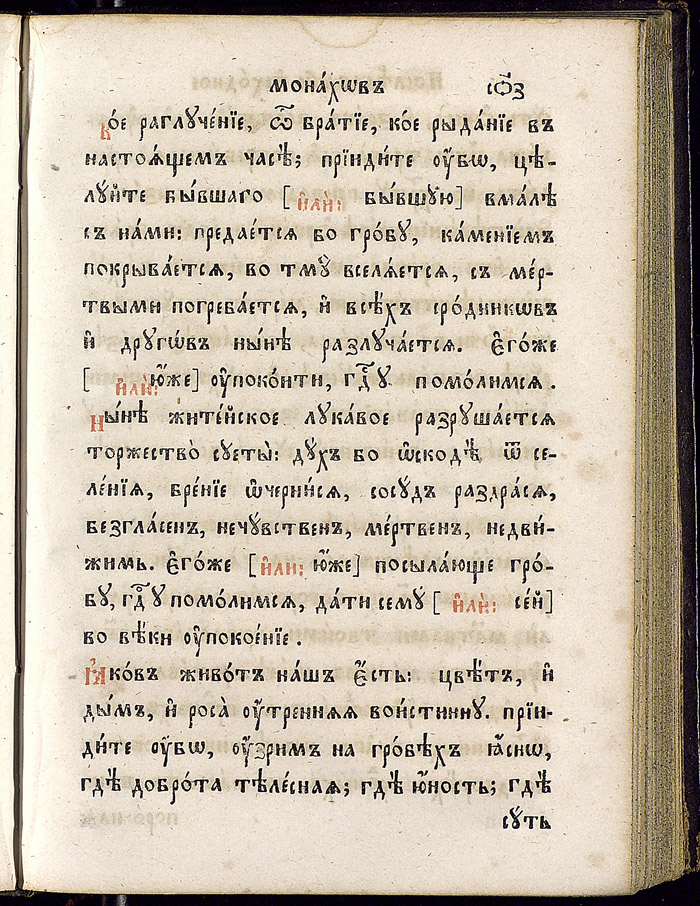 мона́хѡвъ сѻ҃з
Ко́е раглꙋче́нїе, ѽ бра́тїе, ко́е рыда́нїе въ
настоѧ́щемъ часѣ̀; прїиди́те ᲂу҆̀бѡ, цѣ-
лꙋ́йте бы́вшаго [и҆лѝ: бы́вшꙋю] вма́лѣ
съ на́ми: предае́тсѧ бо гро́бꙋ, ка́менїемъ
покрыва́етсѧ, во тмꙋ̀ вселѧ́етсѧ, съ ме́р-
твыми погреба́етсѧ, и҆ всѣ́хъ сро́дникѡвъ
и҆ дрꙋгѡ́въ ны́нѣ разлꙋча́етсѧ. Є҆го́же
[и҆лѝ: ю҆́же] ᲂу҆поко́ити, гдⷭ҇ꙋ помо́лимсѧ.
Ны́нѣ жите́йское лꙋка́вое разрꙋша́етсѧ
торжество̀ сꙋеты̀: дꙋ́хъ бо ѡ҆скꙋдѣ̀ ѿ се-
ле́нїѧ, бре́нїе ѡ҆черни́сѧ, сосꙋ́дъ раздра́сѧ,
безгла́сенъ, нечꙋ́вственъ, ме́ртвенъ, недви́-
жимь. Є҆го́же [и҆лѝ: ю҆́же] посыла́юще гро́-
бꙋ, гдⷭ҇ꙋ помо́лимсѧ, да́ти семꙋ̀ [и҆лѝ: се́й]
во вѣ́ки ᲂу҆покое́нїе.
Ꙗ҆ко́въ живо́тъ на́шъ є҆́сть: цвѣ́тъ, и҆
ды́мъ, и҆ роса̀ ᲂу҆́треннѧѧ вои́стиннꙋ. прїи-
ди́те ᲂу҆̀бѡ, ᲂу҆́зримъ на гро́бѣхъ ꙗ҆́снѡ,
гдѣ̀ добро́та тѣле́снаѧ; гдѣ̀ ю҆́ность; гдѣ̀
сꙋ́ть